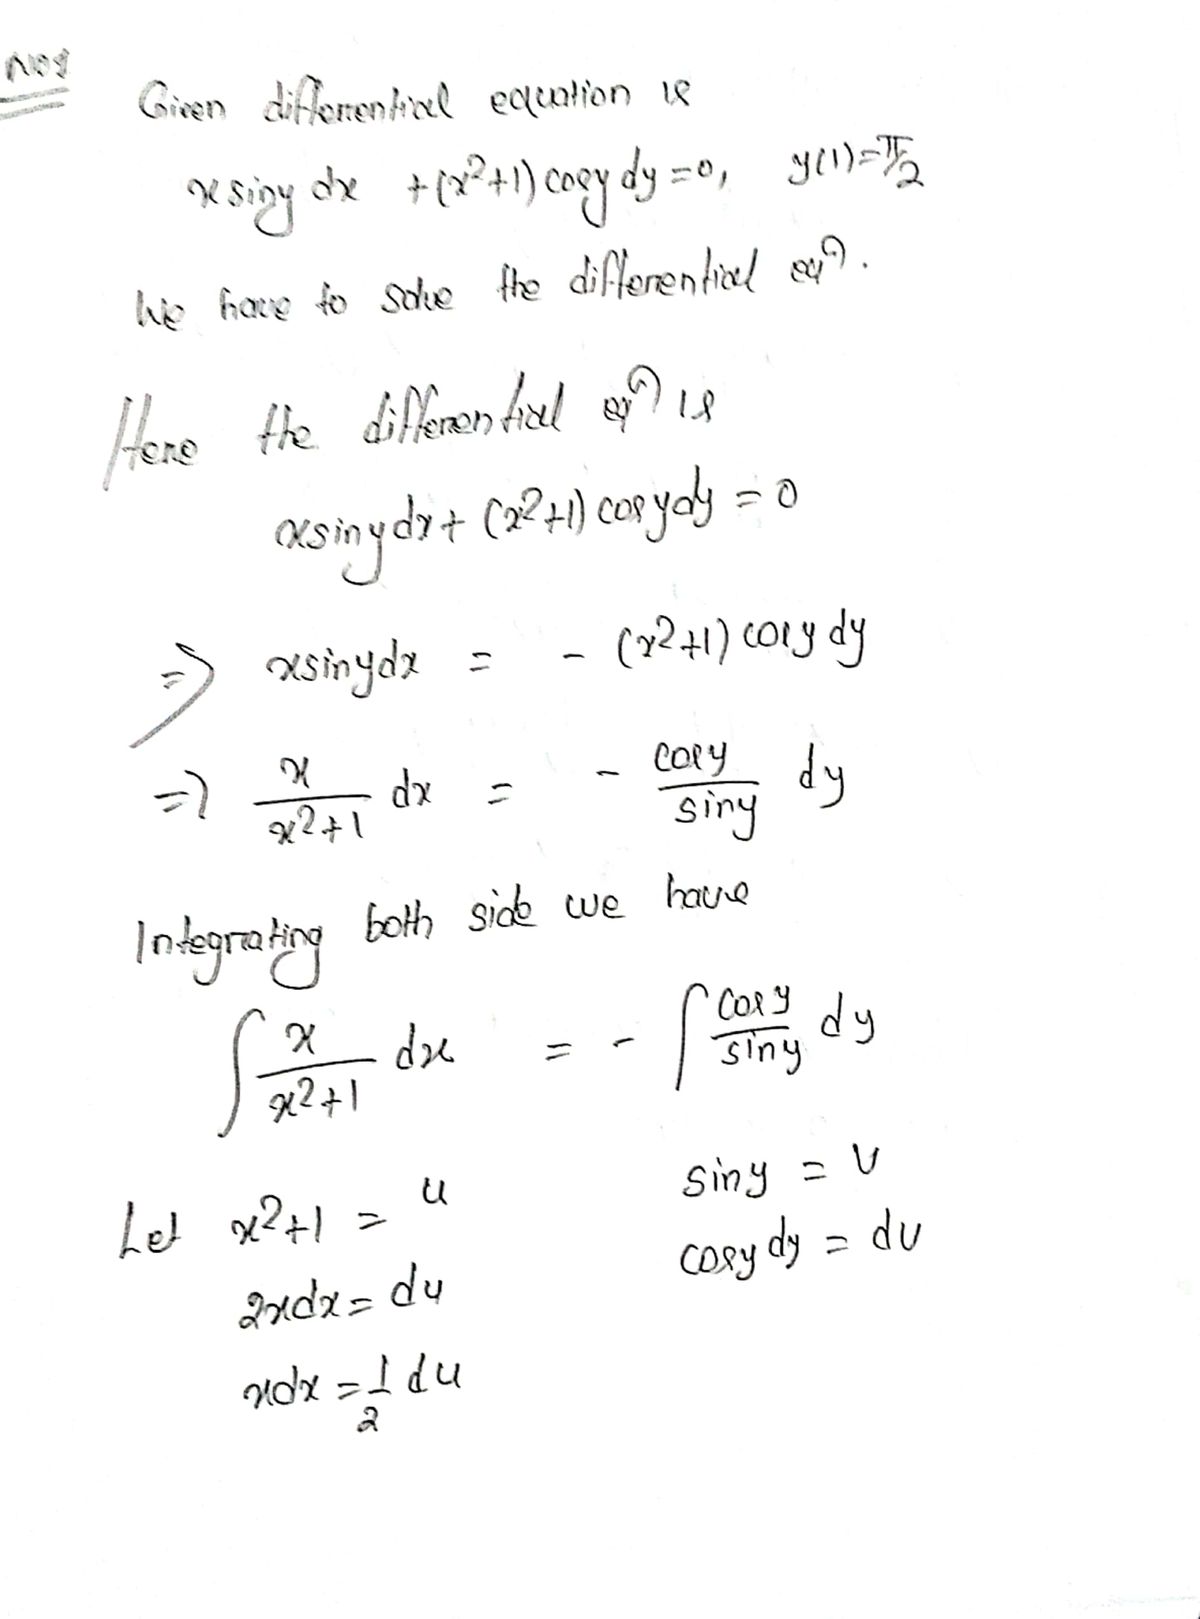 Given differential equation is
x siny dx + (x²+1) cosy dy = 0, y(1) = π/2
We have to solve the differential eqn.
Here the differential eqn is
x siny dx + (x²+1) cosy dy = 0
=> x siny dx = - (x²+1) cosy dy
=> x/(x²+1) dx = - cosy/siny dy
Integrating both side we have
∫ x/(x²+1) dx = - ∫ cosy/siny dy
Let x²+1 = u siny = v
2xdx = du cosy dy = dv
xdx = 1/2 du